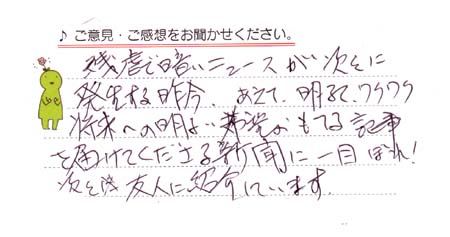 ♪ ご意見・ご感想をお聞かせください。
残虐で暗いニュースが次々に
発生する昨今、あえて、明るく、ワクワク
将来への明るい希望がもてる記事
を届けてくださる新聞に一目ぼれ!
次々 友人に紹介しています。